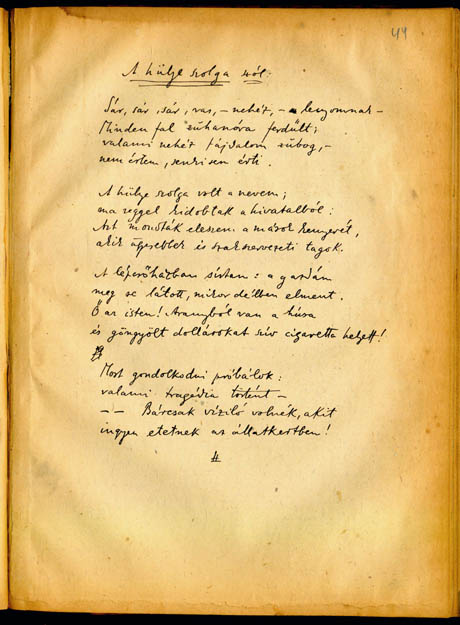 44
A hülye szolga szól:
Sár, sár, sár, vas, – nehéz, – lenyomnak –
Minden fal zuhanóra ferdült;
valami nehéz fájdalom zúbog, –
nem értem, senki sem érti.
A hülye szolga volt a nevem;
ma reggel kidobtak a hivatalból:
Azt mondták eleszem a mások kenyerét,
akik ügyesebbek és szakszervezeti tagok.
A lépcsőházban sírtam: a gazdám
meg se látott, mikor délben elment.
Ő az isten! Aranyból van a húsa
és göngyölt dollárokat szív cigaretta helyett!
Most gondolkodni próbálok:
valami tragédia történt –
– – Bárcsak víziló volnék, akit
ingyen etetnek az állatkertben!